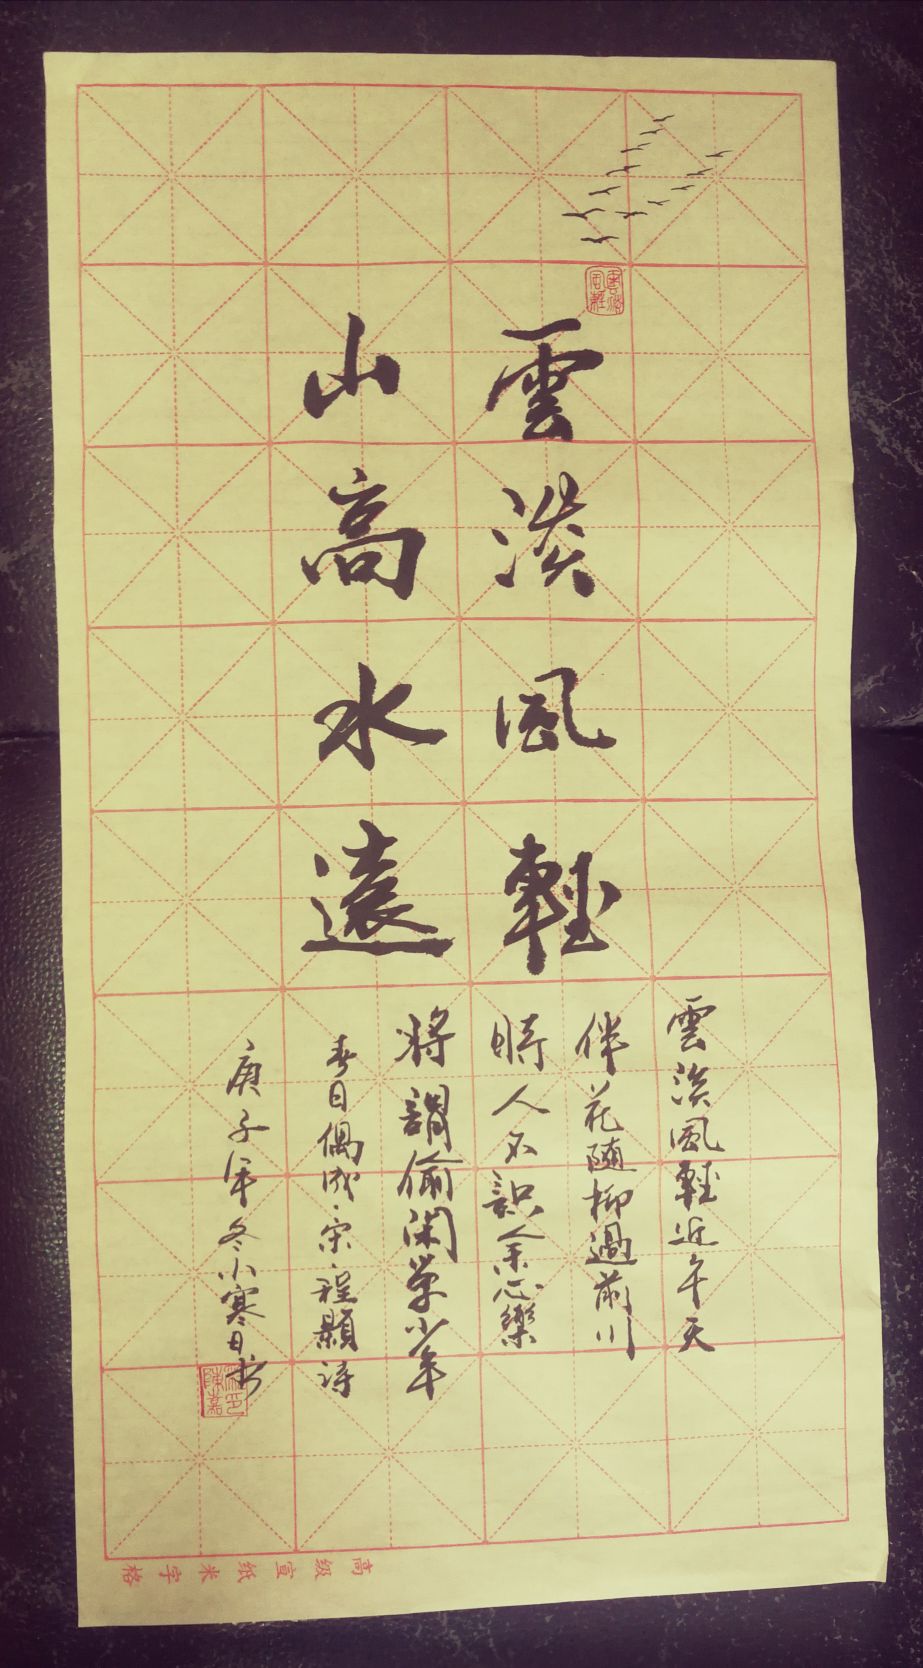 雲淡風輕
山高水遠
雲淡風輕近午天
伴花隨柳過前川
時人不識余心樂
將謂偷閑學少年
春日偶成·宋·程顥詩
庚子年冬小寒日书
雲淡風輕
高级宣纸米字格